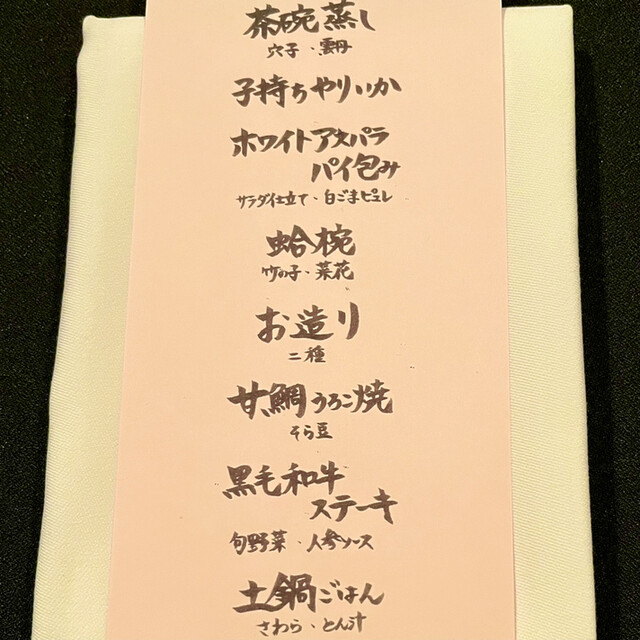 茶碗蒸し
穴子・雲丹
子持ちやりいか
ホワイトアスパラ
パイ包み
サラダ仕立て・白ごまピュレ
蛤椀
竹の子・菜花
お造り
二種
甘鯛うろこ焼
そら豆
黒毛和牛
ステーキ
旬野菜・人参ソース
土鍋ごはん
さわら・とん汁